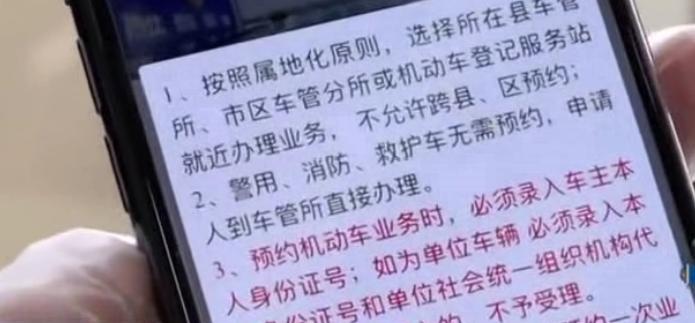 1、按照属地化原则，选择所在县车管
所、市区车管分所或机动车登记服务站
就近办理业务，不允许跨县、区预约；
2、警用、消防、救护车无需预约，申请
人到车管所直接办理。
3、预约机动车业务时，必须录入车主本
人身份证号；如为单位车辆 必须录入本
身份证号和单位社会统一组织机构代
不予受理。
一次业